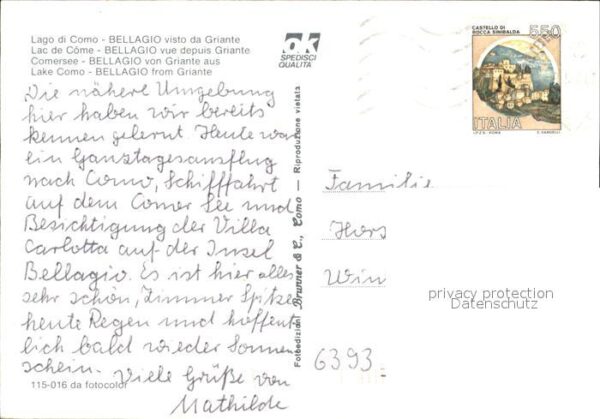 Lago di Como - BELLAGIO visto da Griante
Lac de Côme - BELLAGIO vue depuis Griante
Comersee - BELLAGIO von Griante aus
Lake Como - BELLAGIO from Griante
ok
SPEDISCI
QUALITÀ
CASTELLO DI
ROCCA SINIBALDA
550
ITALIA
I.P.Z.S. ROMA
E. VANGELLI
Die nähere Umgebung
hier haben wir bereits
kennen gelernt. Heute war
ein Ganztagesausflug
nach Como, Schifffahrt
auf dem Comer See und
Besichtigung der Villa
Carlotta auf der Insel
Bellagio. Es ist hier alles
sehr schön, Zimmer Spitze
heute Regen und hoffent
lich bald wieder Sonnen
schein. Viele Grüße von
Mathilde
115-016 da fotocolor
Fotoedizioni Brunner & C., Como - Riproduzione vietata
Familie
Hors
Win
6393
privacy protection
Datenschutz